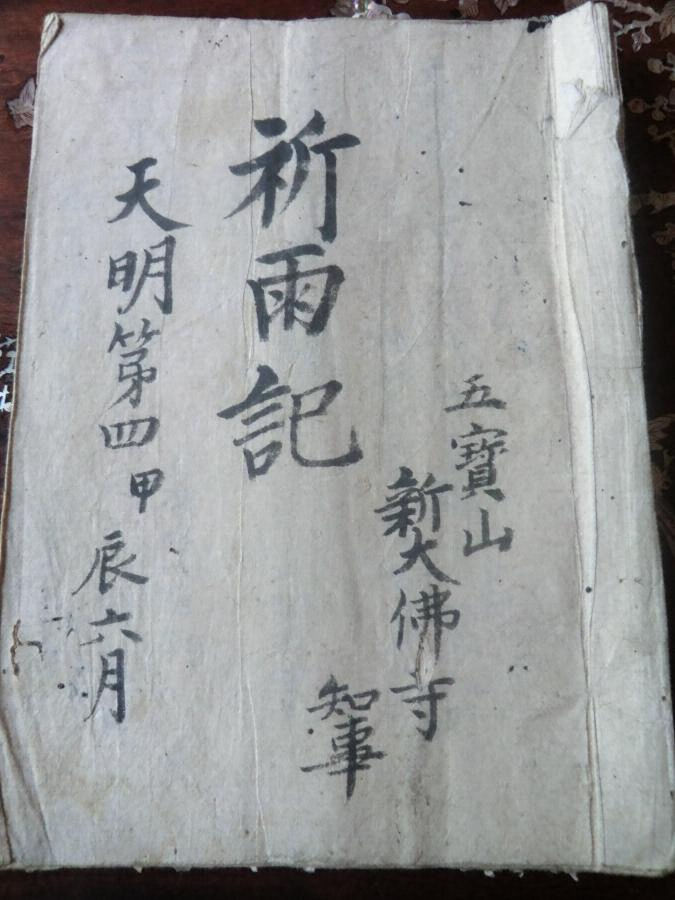 五寶山
新大佛寺
知事
祈雨記
天明第四甲辰六月